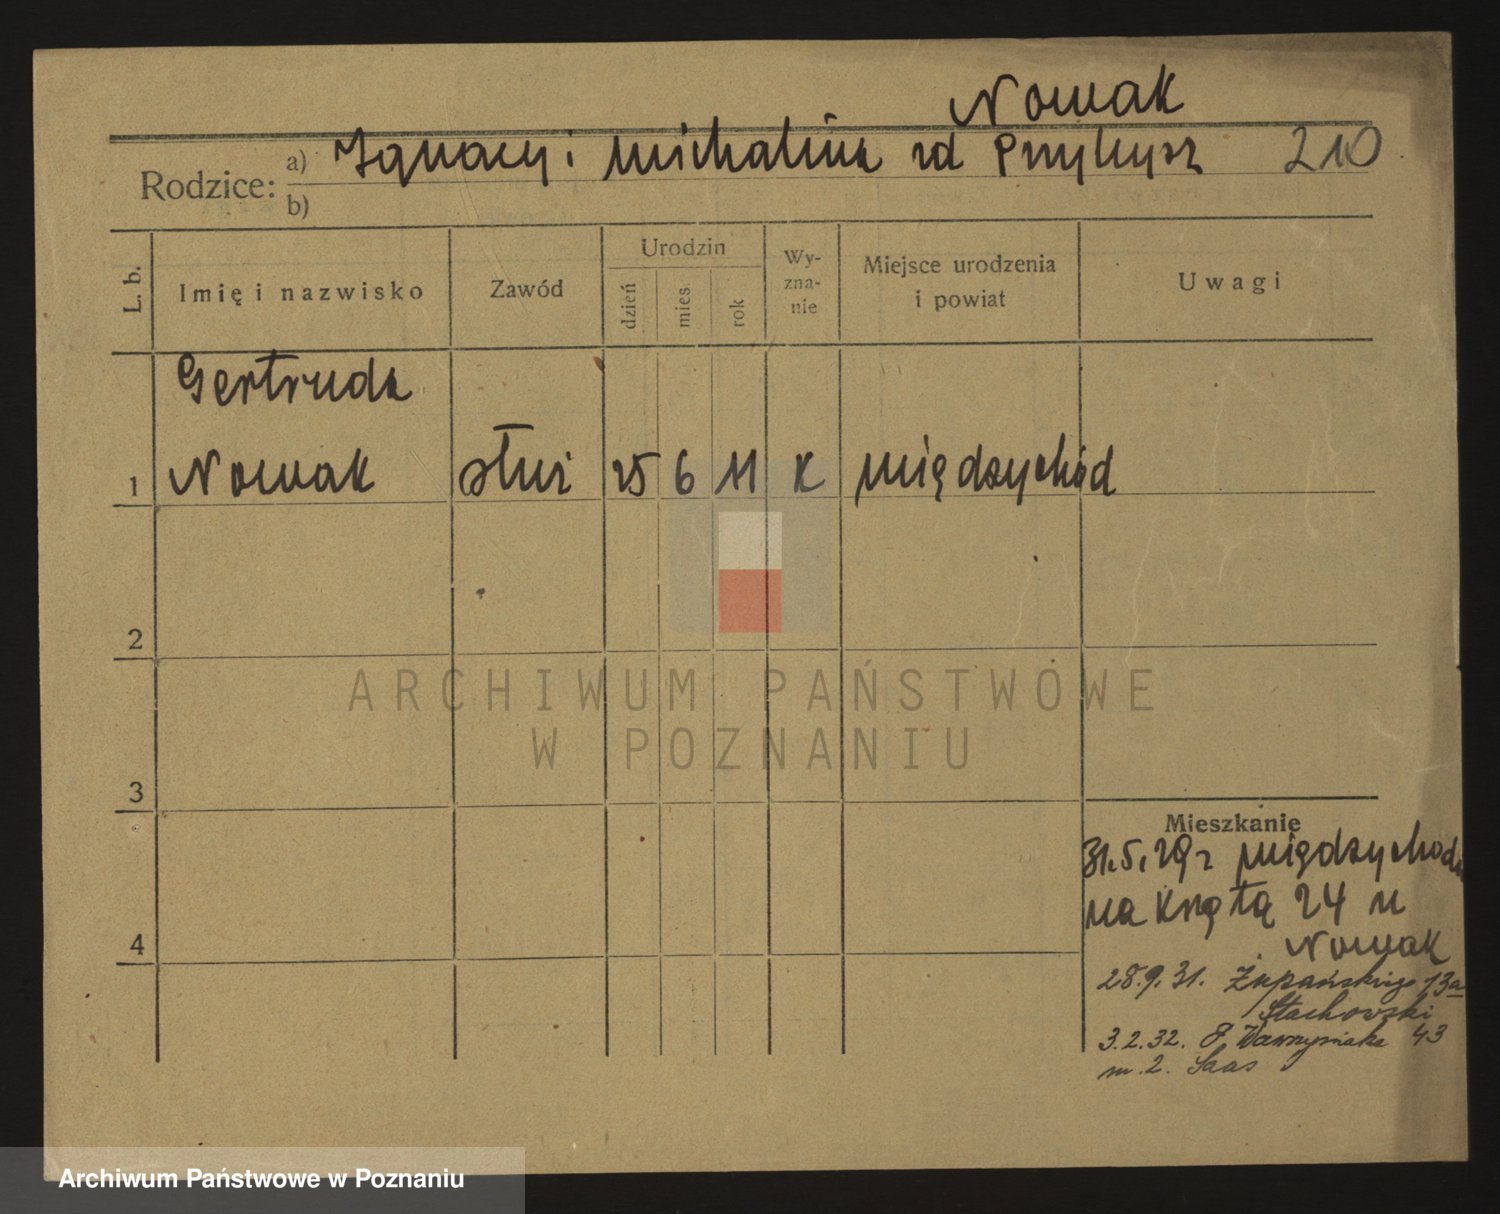 Nowak
Rodzice: a) Ignacy i Michalina zd Przybysz 210
b)
L. b. Imię i nazwisko Zawód Urodzin dzień mies rok Wy-zna-nie Miejsce urodzenia i powiat Uwagi
Gertruda
1 Nowak służ 25 6 11 K Międzychód
2
ARCHIWUM PAŃSTWOWE
W POZNANIU
3
Mieszkanie
31.5.29 r Międzychodu
na Krętą 24 u
4
Nowak
28.9.31. Żupańskiego 13a
Stachowski
3.2.32. F. Wawrzyniaka 43
m. 2. Saas
Archiwum Państwowe w Poznaniu